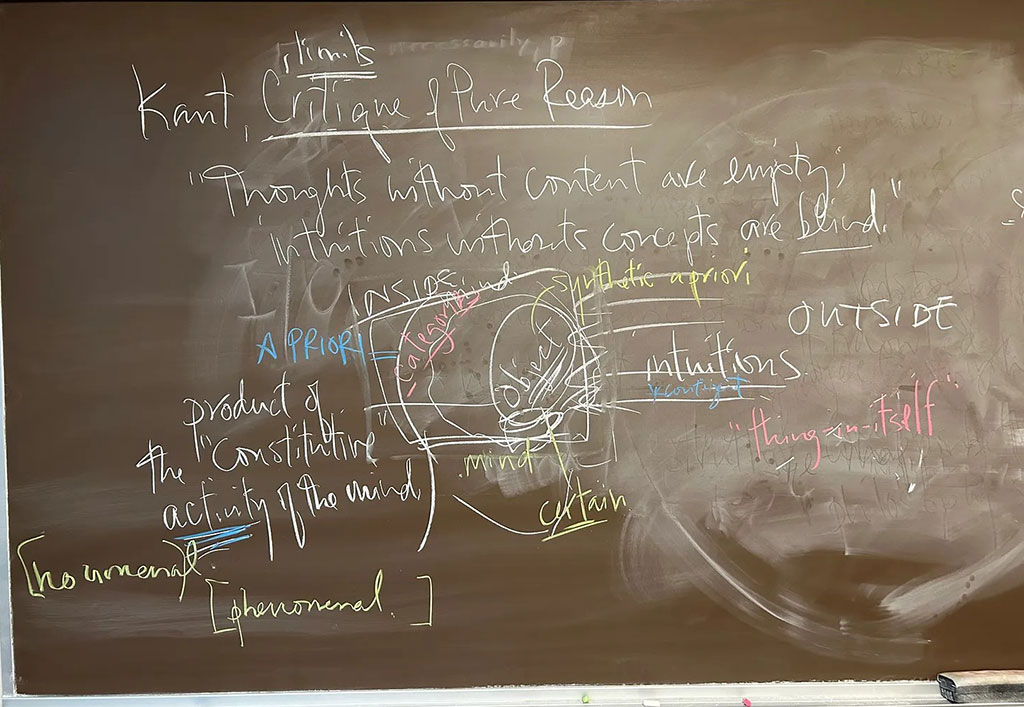 limits
Kant, Critique of Pure Reason
"Thoughts without content are empty;
intuitions without concepts are blind."
INSIDE mind
synthetic a priori
OUTSIDE
A PRIORI = categories
object
intuitions
product of
the "Constitutive"
activity of the mind
"thing-in-itself"
mind
certain
[noumenal]
[phenomenal.]